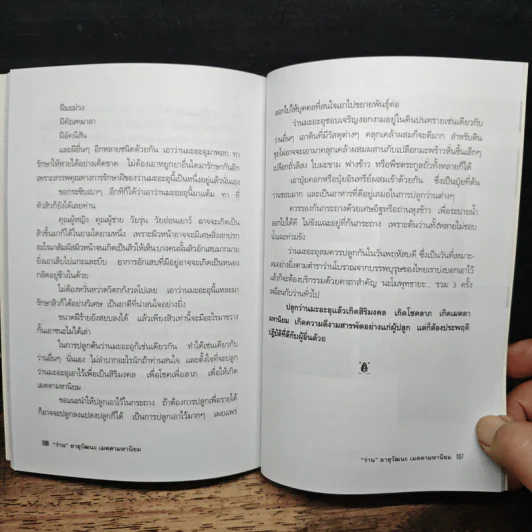 ฝีมะม่วง
ฝีคัณฑมาลา
ฝีอัคนีสัน
และฝีอื่นๆ อีกหลายชนิดด้วยกัน เอาว่านมะอะอุมาพอก ทา
รักษาให้หายได้อย่างเด็ดขาด ไม่ต้องเอาหยูกยาอื่นใดมารักษากันอีก
เพราะสรรพคุณทางการรักษาฝีของว่านมะอะอุนี้เป็นหนึ่งอยู่แล้วนั่นเอง
ขอกระซิบเบาๆ อีกทีก็ได้ว่าเอาว่านมะอะอุนี้มาแต้ม ทา ที่
หัวสิวก็ยังได้เลยท่าน
คุณผู้หญิง คุณผู้ชาย วัยรุ่น วัยอ่อนเยาว์ อาจจะเกิดเป็น
สิวขึ้นมาได้ในยามใดยามหนึ่ง เพราะผิวหน้าอาจจะมีเศษสิ่งสกปรก
อะไรมาสัมผัสผิวหน้าจะเกิดเป็นสิวให้เห็นบางคนนั้นสิวอักเสบมากมาย
ยิ่งเอาเล็บไปแกะและบีบ อาการอักเสบที่มีอยู่อาจจะเกิดเป็นหนอง
กลัดอยู่ข้างในด้วย
ไม่ต้องไปหวาดวิตกกังวลใดเลย เอาว่านมะอะอุนี้แหละมา
รักษาสิวก็ได้อย่างวิเศษ เป็นยาดีที่น่าสนใจอย่างยิ่ง
ขนาดฝีร้ายยังสยบลงได้ แล้วเพียงสิวเท่านี้จะมีอะไรมาขวาง
กั้นเอาชนะไม่ได้เล่า
ในการปลูกต้นว่านมะอะอุก็เช่นเดียวกัน ทำได้เช่นเดียวกับ
ว่านอื่นๆ นั่นเอง ไม่ลำบากอะไรนักถ้าท่านสนใจ และตั้งใจที่จะปลูก
ว่านมะอะอุเอาไว้เพื่อเป็นสิริมงคล เพื่อโชคเพื่อลาภ เพื่อให้เกิด
เมตตามหานิยม
ขอแนะนำให้ปลูกเอาไว้ในกระถาง ถ้าต้องการปลูกเพื่อรายได้
ก็อาจจะปลูกลงแปลงปลูกก็ได้ เป็นการปลูกเอาไว้มากๆ เผยแพร่
106 "ว่าน" อายุวัฒนะ เมตตามหานิยม
ออกไปให้บุคคลที่สนใจเอาไปขยายพันธุ์ต่อ
ว่านมะอะอุชอบเจริญงอกงามอยู่ในดินปนทรายเช่นเดียวกับ
ว่านอื่นๆ เอาดินที่มีวัสดุต่างๆ คลุกเคล้าผสมก็จะดีมาก สำหรับดิน
ขุยไผ่อาจจะเอามาคลุกเคล้าผสมผสานกับเปลือกมะพร้าวหั่นชิ้นเล็กๆ
เปลือกถั่วลิสง ใบมะขาม ฟางข้าว หรือพืชตระกูลถั่วทั้งหลายก็ได้
เอาปุ๋ยคอกหรือปุ๋ยอินทรีย์ผสมเข้าด้วยกัน ซึ่งเป็นปุ๋ยที่ต้น
ว่านชอบมาก และเป็นอาหารที่ดีอยู่เสมอในการปลูกว่านต่างๆ
ควรรองก้นกระถางด้วยเศษอิฐหรือถ่านหุงข้าว เพื่อระบายน้ำ
ออกไปได้ดี ไม่ขังแฉะอยู่ที่ก้นกระถาง เพราะต้นว่านทั้งหลายไม่ชอบ
น้ำแฉะท่วมขัง
ว่านมะอะอุสมควรปลูกกันในวันพฤหัสบดี ซึ่งเป็นวันที่เหมาะ-
สมอย่างยิ่งตามตำราว่านโบราณจากบรรพบุรุษของไทยเราบ่งบอกเอาไว้
แล้วก็จะต้องบริกรรมด้วยคาถาสำคัญ นะโมพุทธายะ... รวม 3 ครั้ง
เหมือนกับว่านทั่วไป
ปลูกว่านมะอะอุแล้วเกิดสิริมงคล เกิดโชคลาภ เกิดเมตตา
มหานิยม เกิดความดีงามสารพัดอย่างแก่ผู้ปลูก แต่ก็ต้องประพฤติ
ปฏิบัติที่ดีกับผู้อื่นด้วย
"ว่าน" อายุวัฒนะ เมตตามหานิยม 107